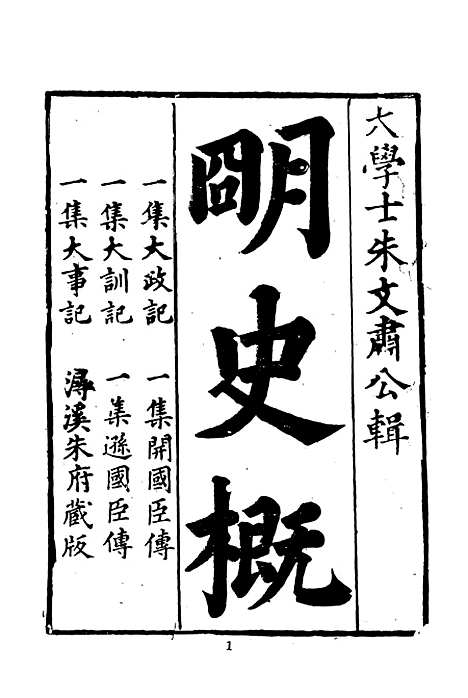 大學士朱文肅公輯
明史概
一集大政記 一集開國臣傳
一集大訓記 一集遜國臣傳
一集大事記 潯溪朱府藏版
1